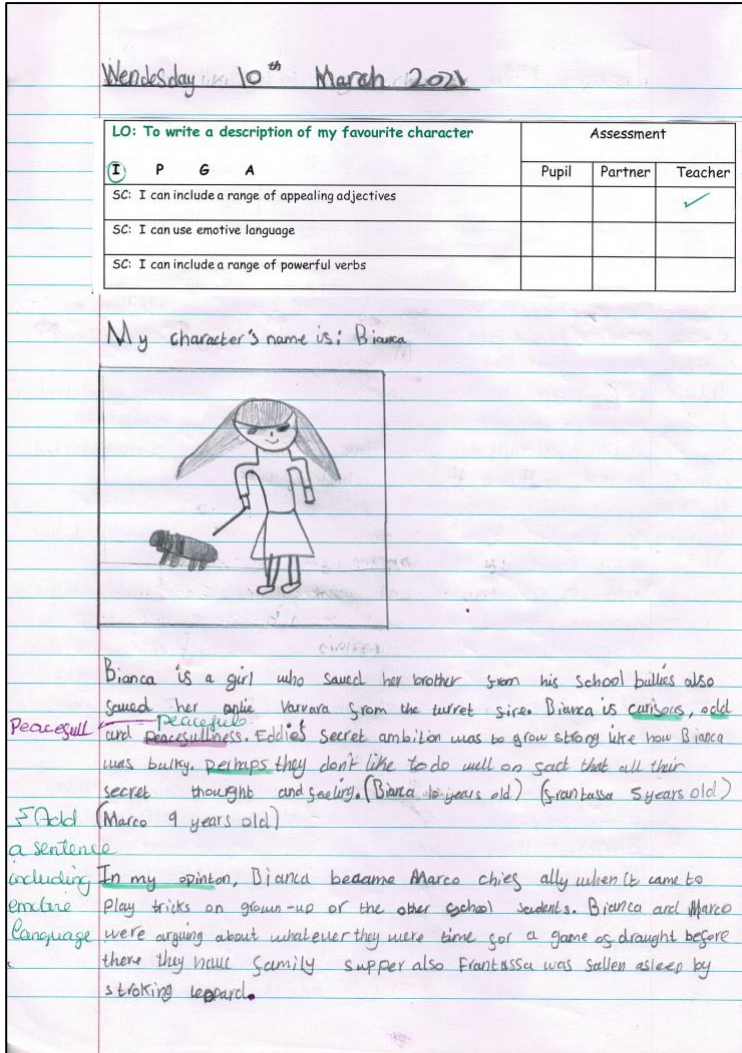 Wendesday 10th March 2021
LO: To write a description of my favourite character
Assessment
I P G A
Pupil Partner Teacher
SC: I can include a range of appealing adjectives
SC: I can use emotive language
SC: I can include a range of powerful verbs
My character's name is: Bianca
Bianca is a girl who saved her brother from his school bullies also
saved her antie Varvara from the turret fire. Bianca is curisous, odd
Peacefull
peaceful
and peacefullness. Eddies secret ambition was to grow strong like how Bianca
was bulky. Perhaps they don't like to do well on fact that all thir
secret thought and feeling. (Bianca 10 years old) (frantassa 5 years old)
(Marco 9 years old)
Add
a sentence
including
emotive
language
In my opinion, Bianca became Marco chief ally when it came to
play tricks on grown-up or the other school students. Bianca and Marco
were arguing about whatever they were time for a game of draught before
there they have family supper also Frantassa was fallen asleep by
stroking leopard.